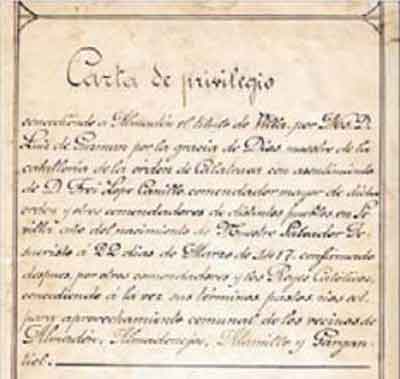 Carta de privilegio
concediendo á Almadén el título de Villa, por Nos D.
Luis de Guzman por la gracia de Dios, maestre de la
caballería de la orden de Calatrava con asentimiento
de D. Frei Lope Carrillo comendador mayor de dicha
orden y otros comendadores de distintos pueblos, en Se
villa año del nacimiento de Nuestro Salvador Je
sucristo á 22 dias de Marzo de 1417, confirmado
despues por otros comendadores y los Reyes Católicos,
concediendo á la vez sus términos pastos rios ect.
para aprovechamiento comunal de los vecinos de
Almadén, Almadenejos, Alamillo y Gargan-
tiel.